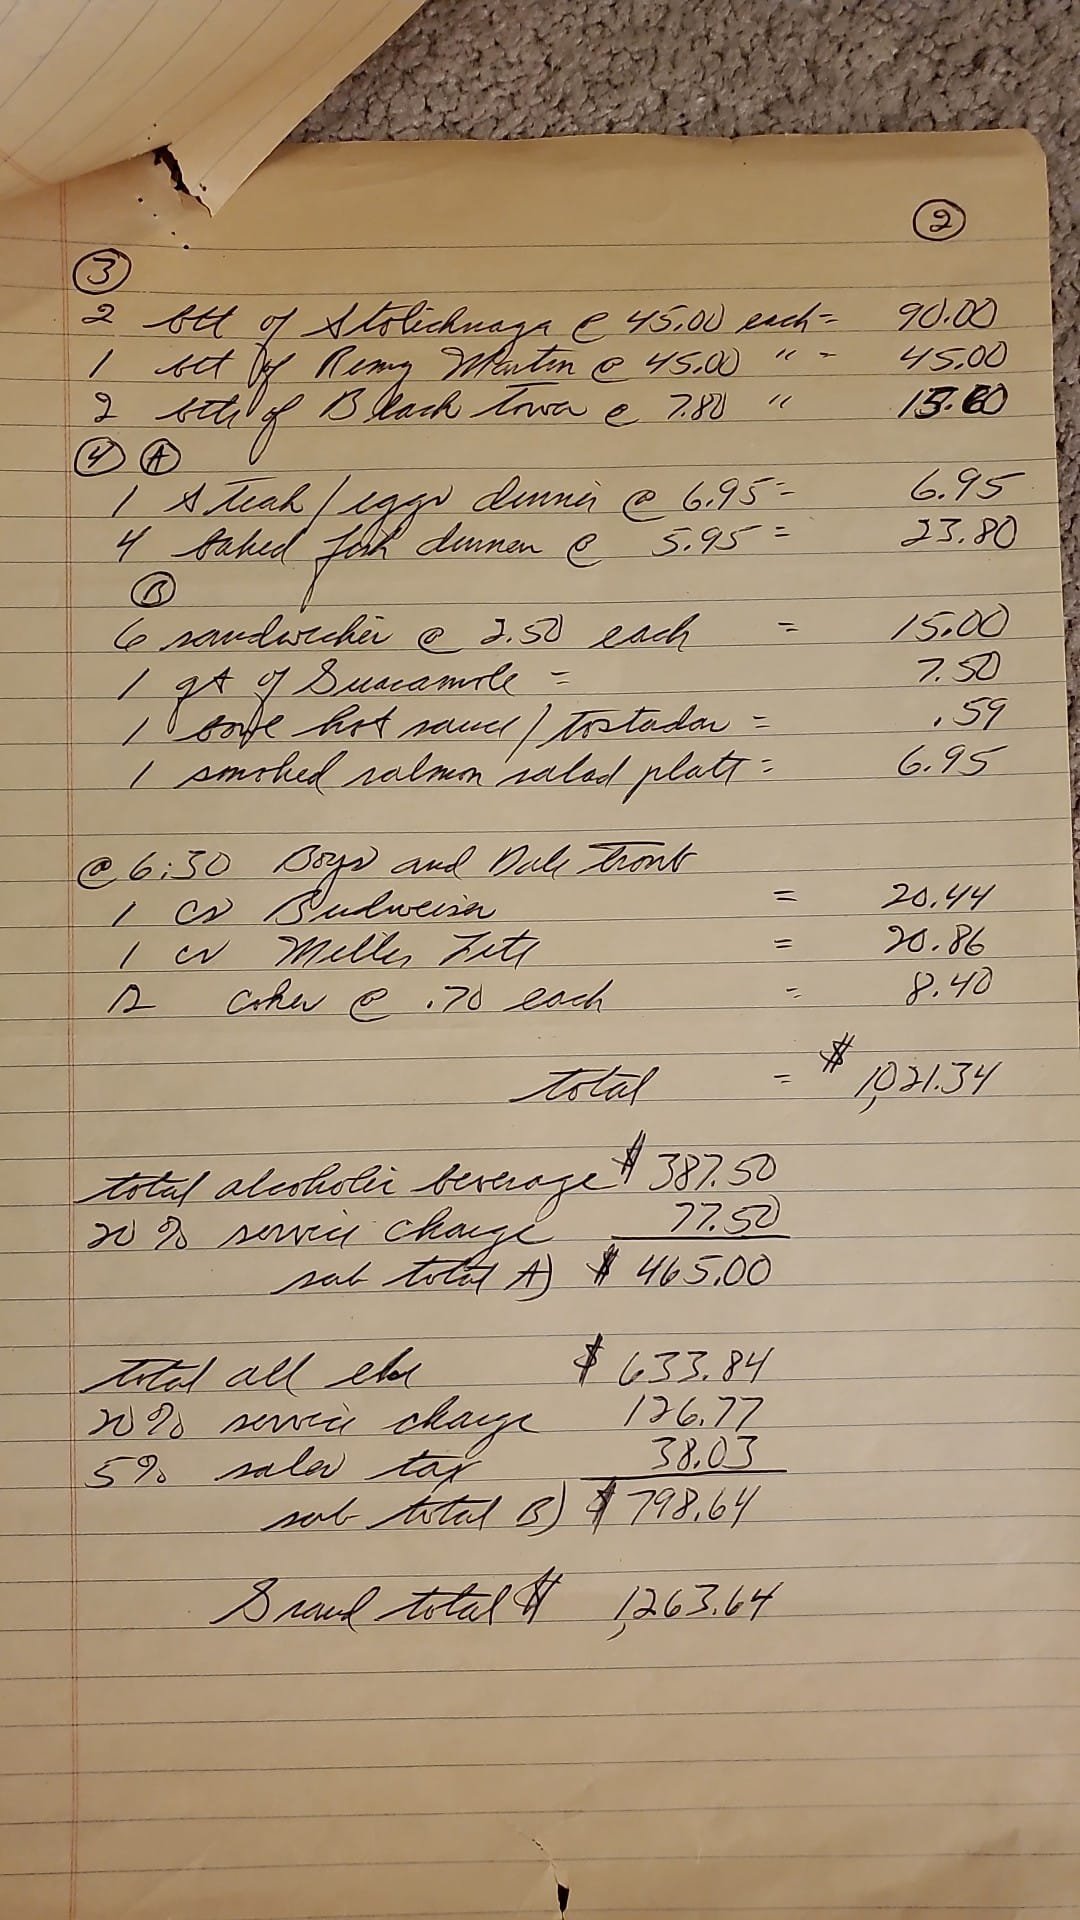 2
3
2 btl of Stolichnaya @ 45.00 each = 90.00
1 btl of Remy Martin @ 45.00 " = 45.00
2 btls of Black Tower @ 7.80 " 15.60
4 A
1 Steak / eggs dinner @ 6.95 = 6.95
4 baked fish dinner @ 5.95 = 23.80
B
6 sandwiches @ 2.50 each = 15.00
1 qt of Guacamole = 7.50
1 hot sauce / tostadas = .59
1 smoked salmon salad platt = 6.95
@ 6:30 Boys and
1 cs Budweiser = 20.44
1 cs Miller Lite = 20.86
12 cokes @ .70 each = 8.40
total = $ 1,021.34
total alcoholic beverage $ 387.50
20% service charge 77.50
sub total A) $ 465.00
total all else $ 633.84
20% service charge 126.77
5% sales tax 38.03
sub total B) $ 798.64
Grand total $ 1,263.64